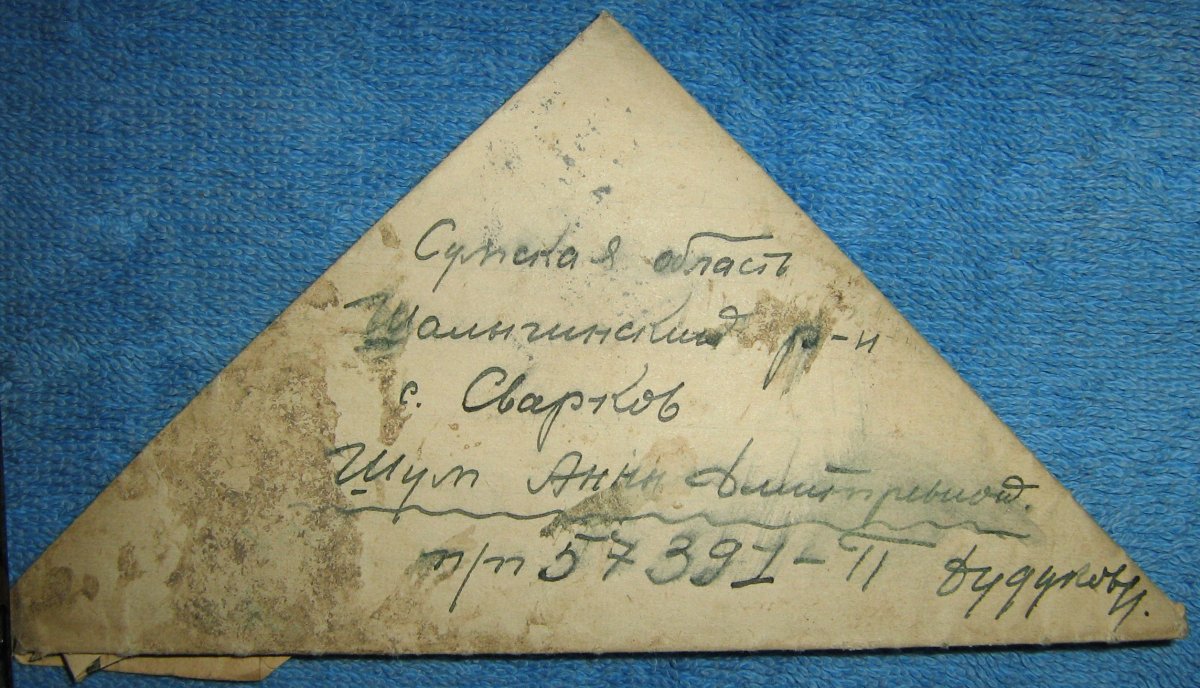 Сумская область
Шалыгинский р-н
с. Сварков
Шум Анны Дмитревной.
п/п 57391-П Дудукову.